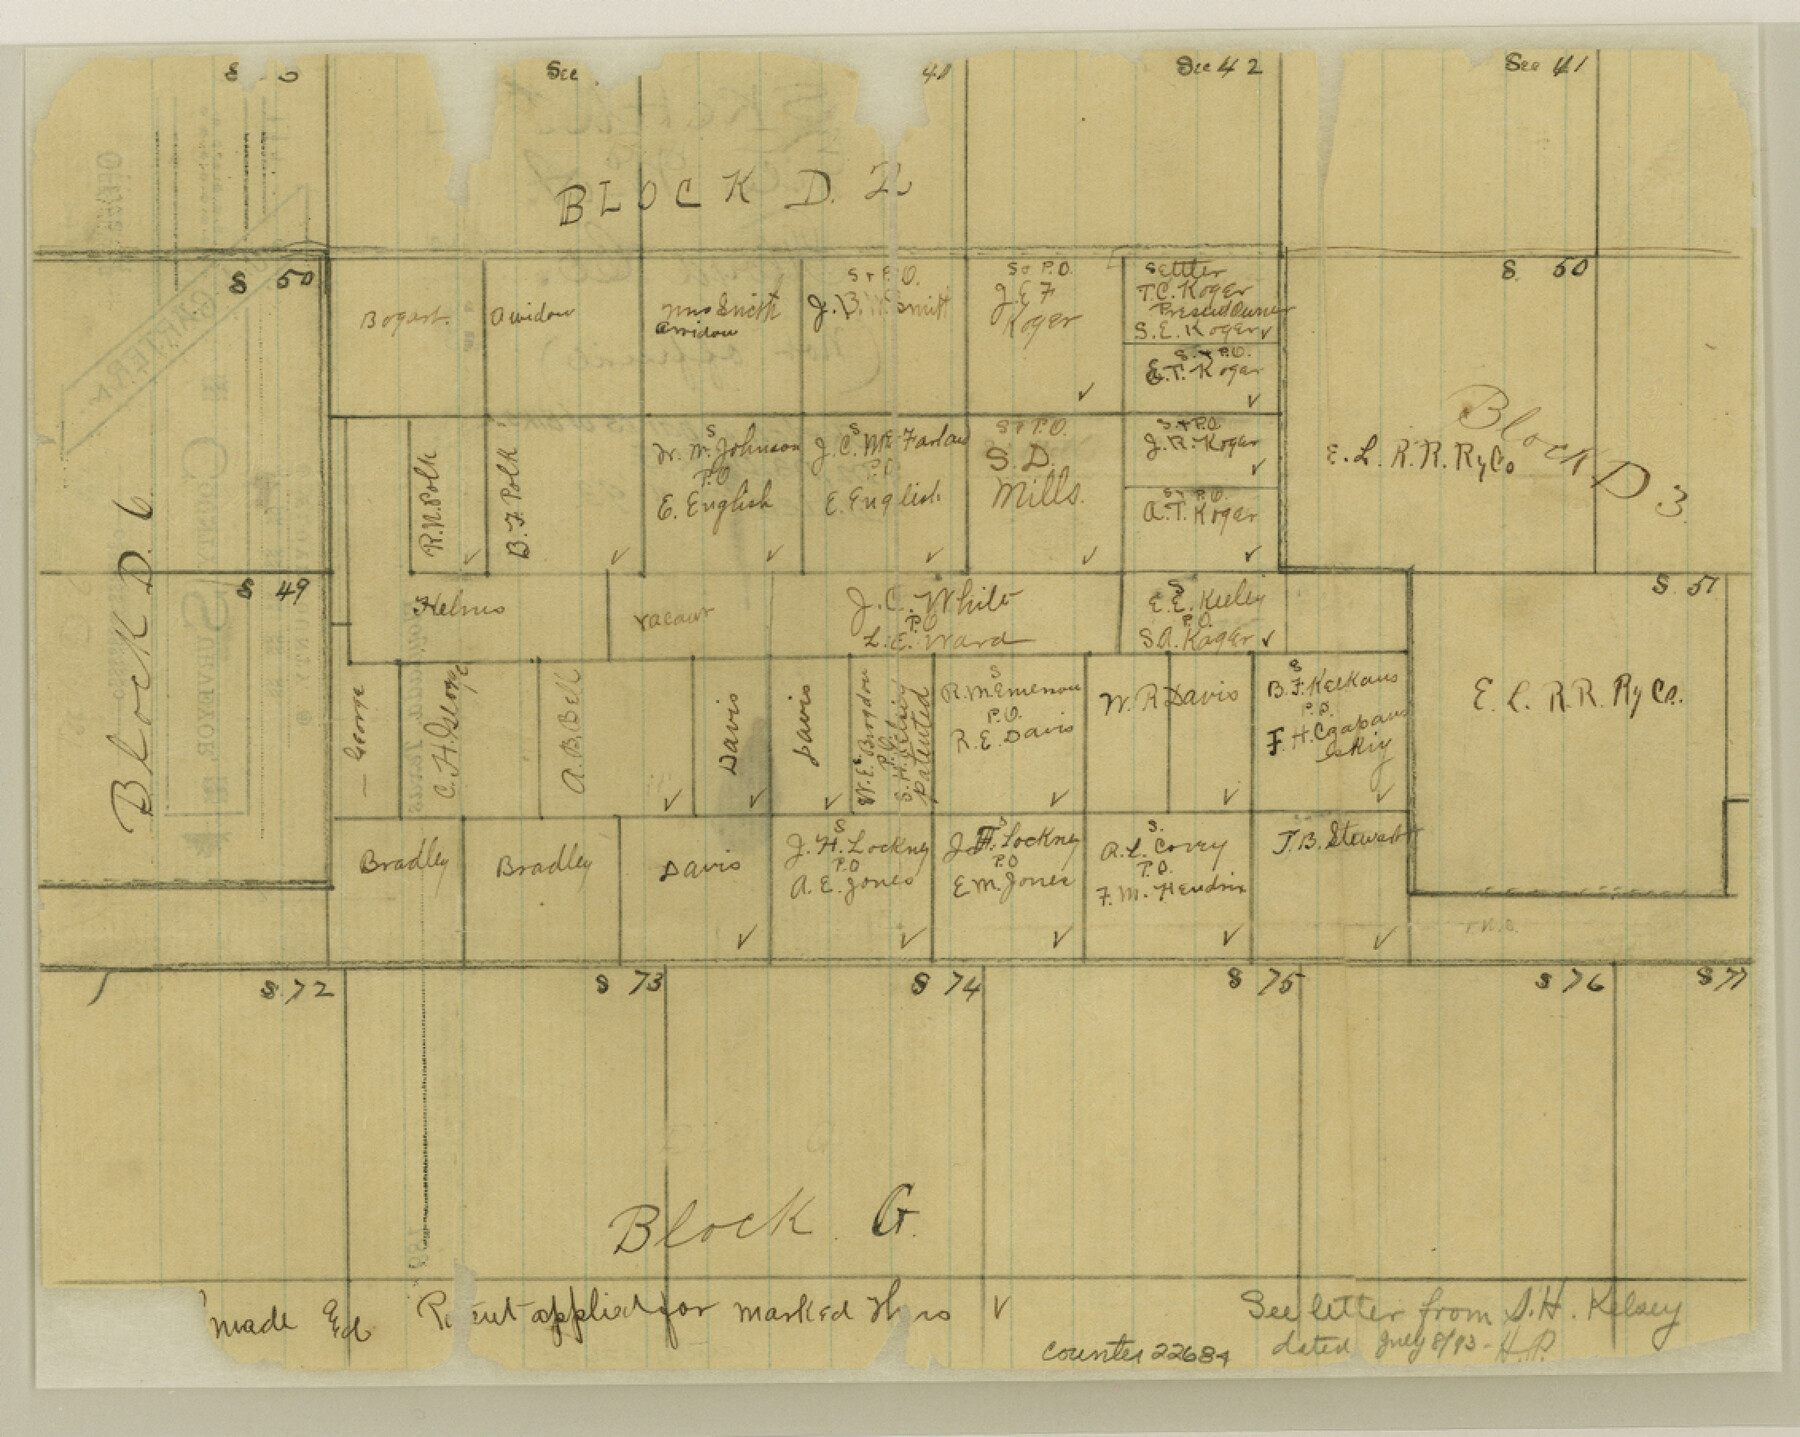 Sec
40
Sec 42
Sec 41
BLOCK D. 2
S 50
Bogart.
A widow
Mrs Smith
A widow
S & P.O.
J. B. Smitt
S & P.O.
J. E. F
Koger
Settler
T.C. Koger
Present Owner
S. E. Koger ✓
S. & P.O.
E. T. Koger
✓
✓
S 50
Block D 3
E. L. R. R. Ry Co
R. N. Polk
✓
B. F. Polk
✓
S
W. W. Johnson
P.O
E. English
✓
S
J. C. McFarland
P.O
E. English
✓
S & P.O.
S. D.
Mills.
✓
S & P.O
J. R. Koger
✓
S & P.O.
A. T. Koger
✓
Block D. 6
S 49
Helms
vacant
J. C. White
P.O
L. E. Ward
S
E. E. Keeley
P.O.
S. A. Koger ✓
S 51
E. L. R. R. Ry Co.
George
C. H. George
A. B. Bell
✓
Davis
✓
Davis
✓
W. E. Brogdon
P.O.
S. H. Kelsey
patented
S
R. M. Emerson
P.O.
R. E. Davis
✓
W. R. Davis
✓
S
B. F. Keekans
P.O.
F. H.
✓
Bradley
Bradley
Davis
✓
S
J. H. Lockney
P.O
A. E. Jones
✓
S
J. H. Lockney
P.O
E M. Jones
✓
S.
A. L. Covey
P.O.
F. M. Hendrix
✓
J. B. Stewart
✓
S 72
S 73
S 74
S 75
S 76
S 77
Block G.
made
applied for marked thus ✓
See letter from S. H. Kelsey
dated July 8/93 - H.P.
counter 22684